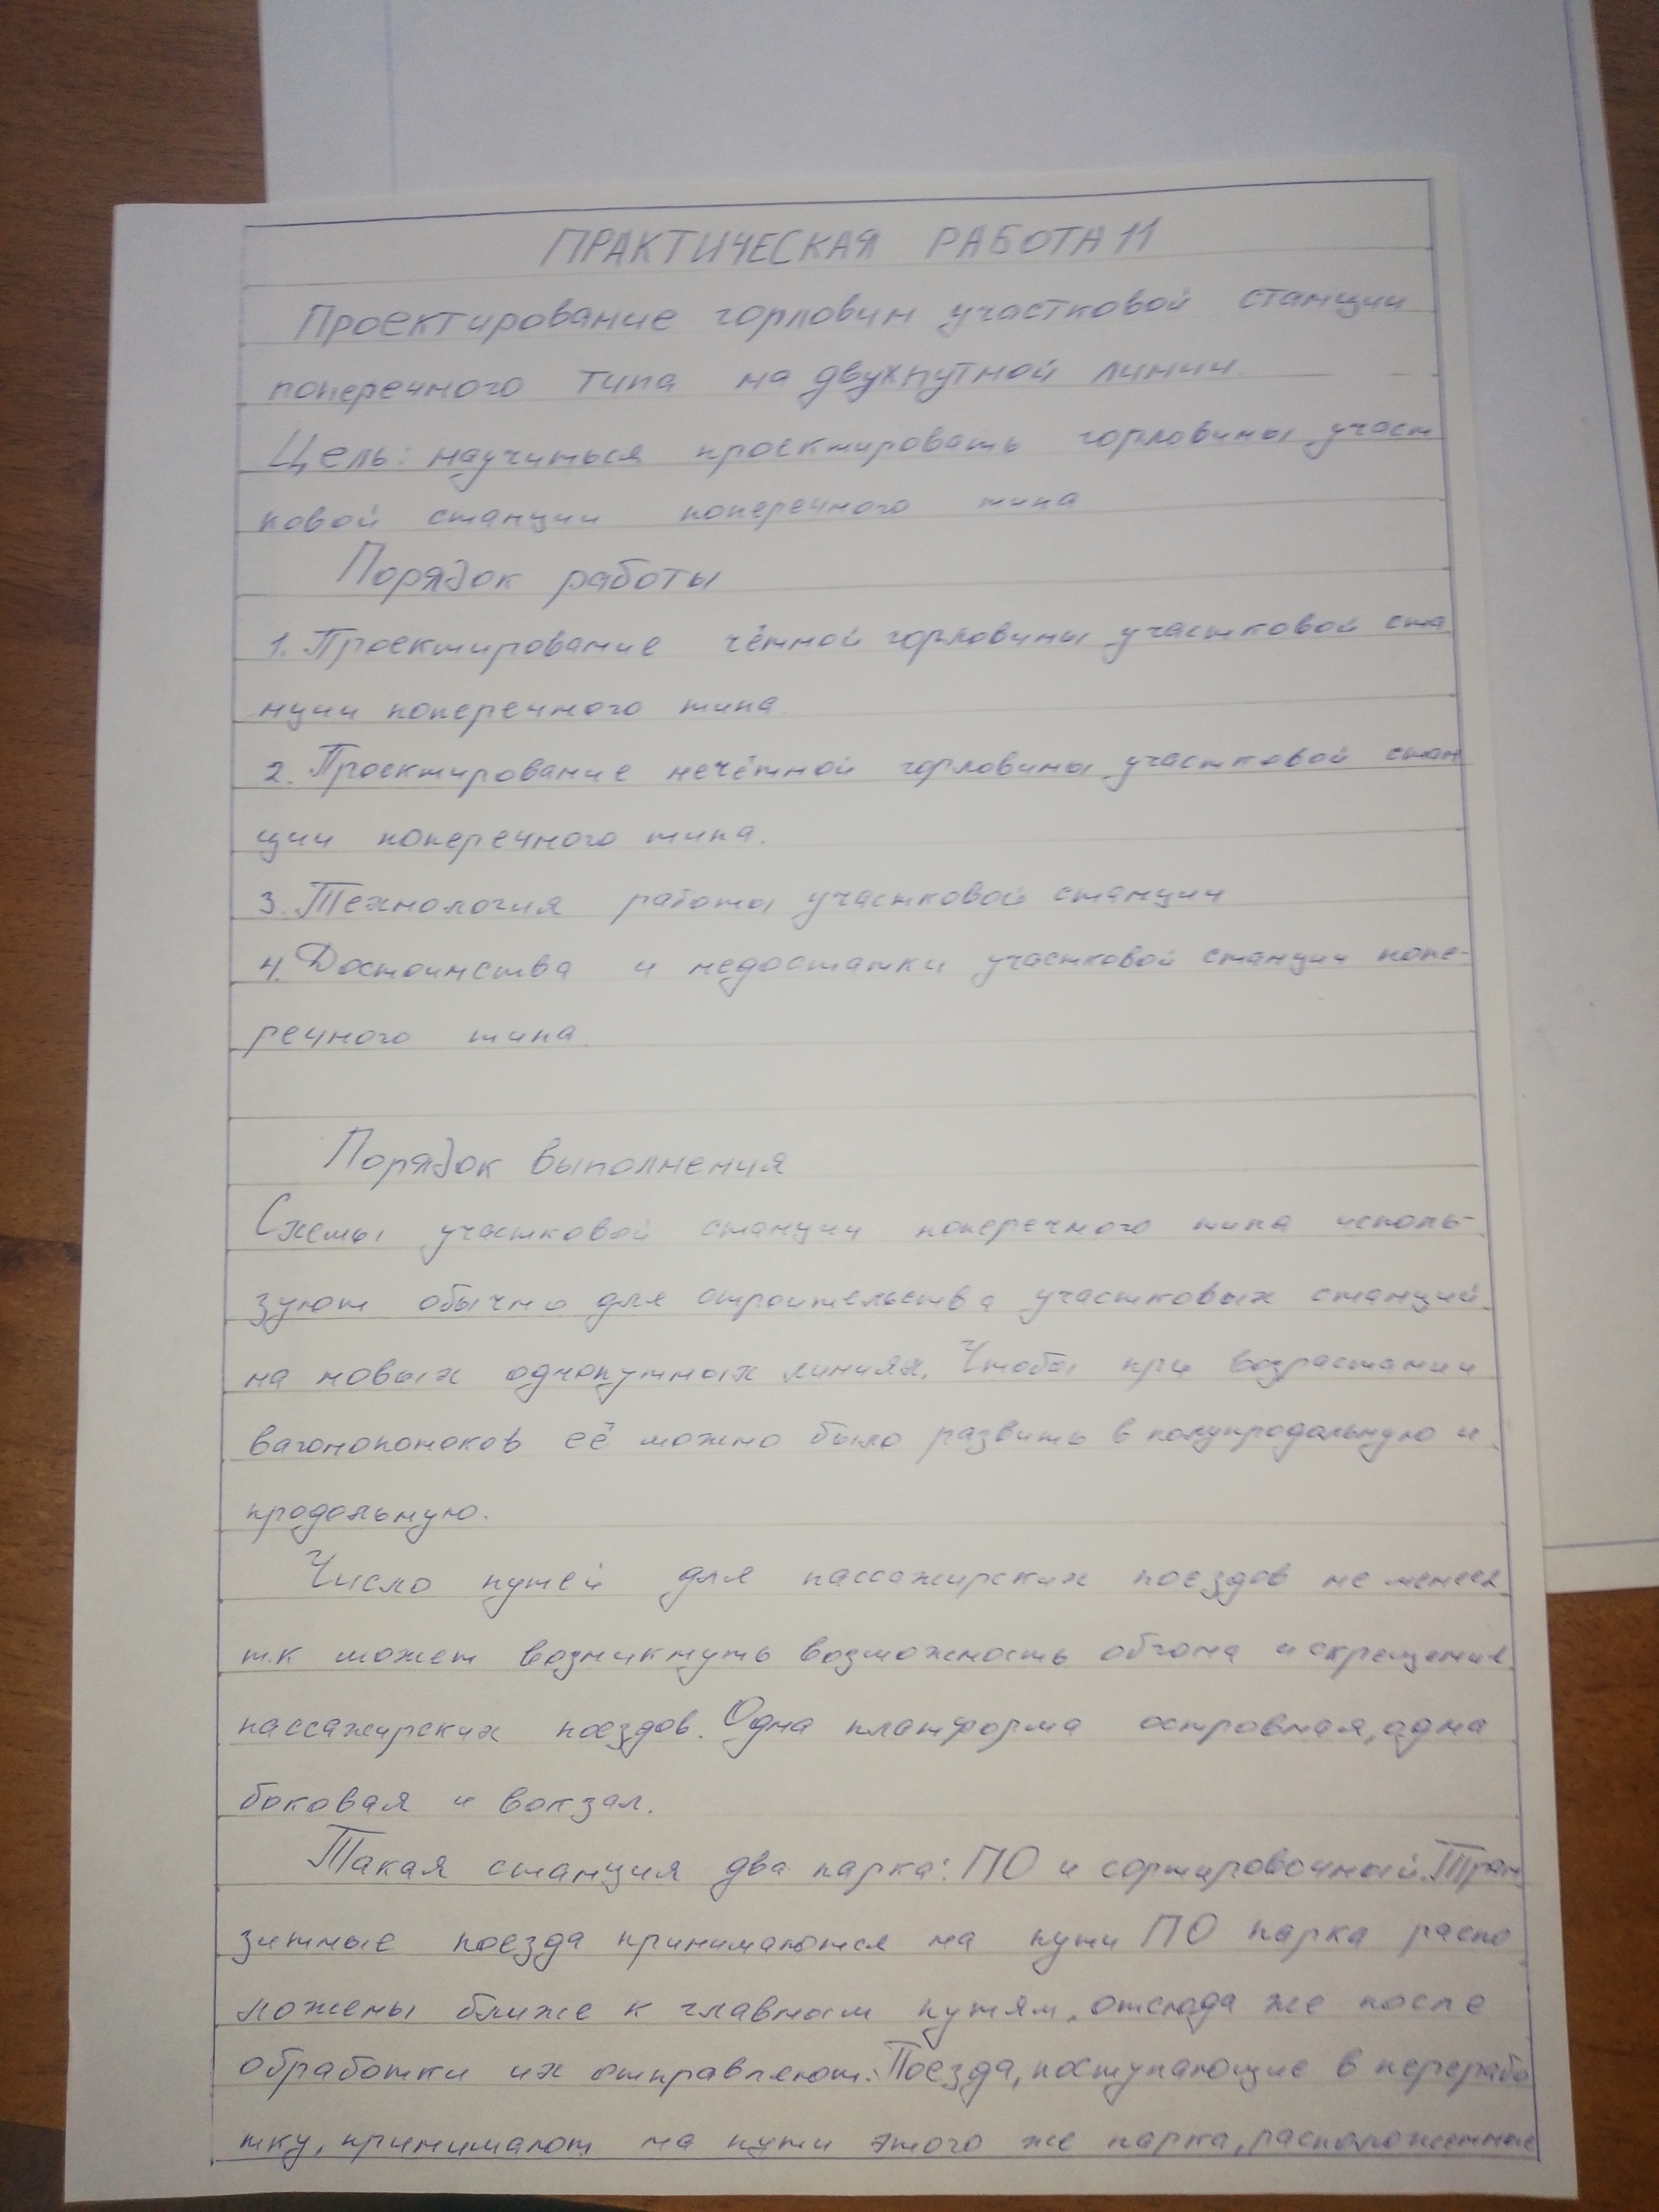 ПРАКТИЧЕСКАЯ РАБОТА 11
Проектирование горловин участковой станции
поперечного типа на двухпутной линии.
Цель: научиться проектировать горловины участ
ковой станции поперечного типа
Порядок работы
1. Проектирование чётной горловины участковой ста
нции поперечного типа.
2. Проектирование нечётной горловины участковой стан
ции поперечного типа.
3. Технология работы участковой станции
4. Достоинства и недостатки участковой станции попе-
речного типа.
Порядок выполнения
Схемы участковой станции поперечного типа исполь-
зуют обычно для строительства участковых станций
на новых однопутных линиях. Чтобы при возрастании
вагонопотоков её можно было развить в полупродольную и
продольную.
Число путей для пассажирских поездов не менее 2
т.к может возникнуть возможность обгона и скрещения
пассажирских поездов. Одна платформа островная, одна
боковая и вокзал.
Такая станция два парка: ПО и сортировочный. Тран
зитные поезда принимаются на пути ПО парка распо
ложены ближе к главным путям, отсюда же после
обработки их отправляют. Поезда, поступающие в перерабо
тку, принимают на пути этого же парка, расположенные